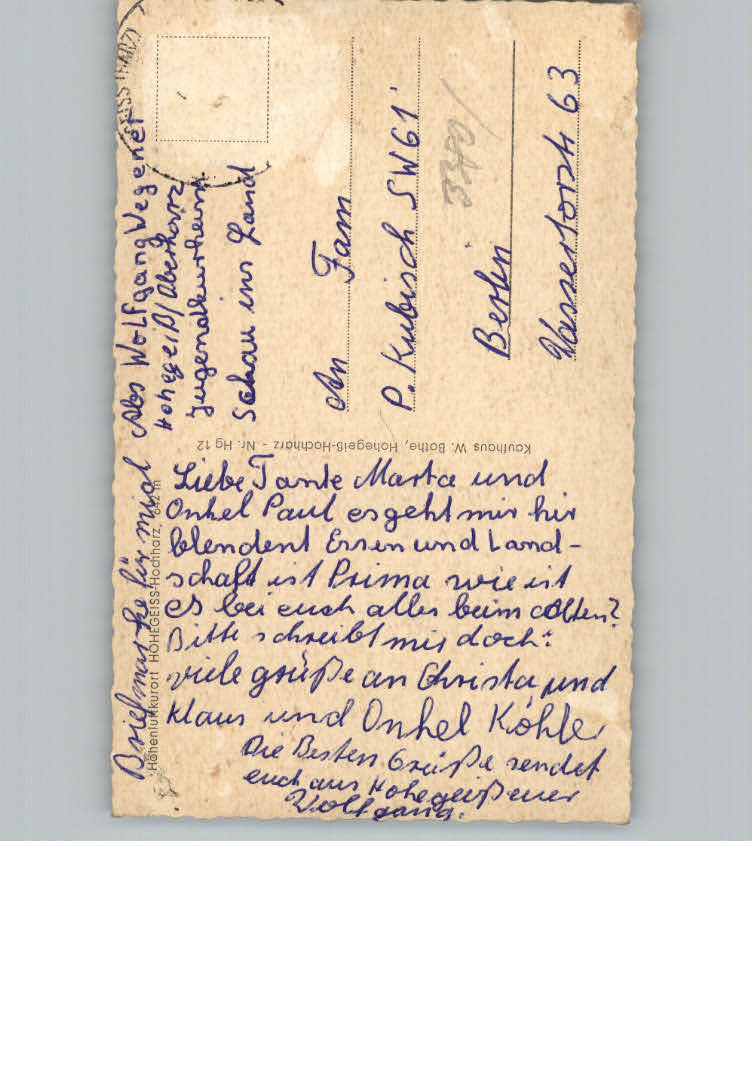 Abs Wolfgang Wegener
Hohegeiß/Oberharz
Jugendkurheim
Schau ins Land
An Fam
P. Kubisch SW61
3370/
Berlin
Wassertorstr 63
Kaufhaus W. Bothe, Hohegeiß-Hochharz - Nr. Hg 12
Höhenluftkurort HOHEGEISS-Hochharz, 642 m
Briefmarke für mich
Liebe Tante Marta und
Onkel Paul es geht mir hir
blendent Essen und Land-
schaft ist Prima wie ist
es bei euch alles beim Alten?
Bitte schreibt mir doch:
viele grüße an Christa und
Klaus und Onkel Köhler
Die Besten Grüße sendet
euch aus Hohegeiß euer
Wolfgang.